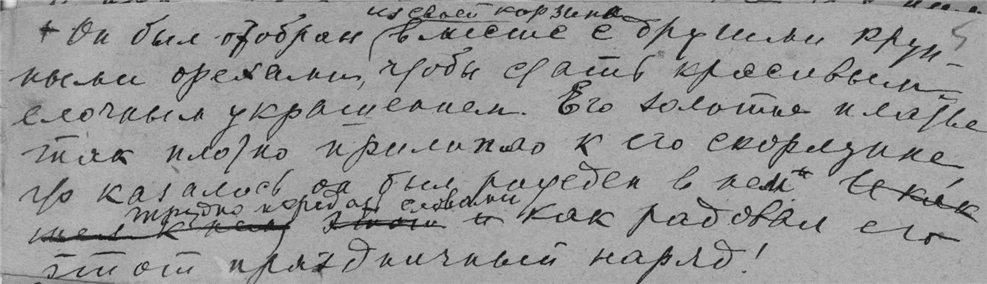 из своей корзины
+ Он был отобран вместе с другими круп-
ными орехами, чтобы стать красивым
елочным украшением. Его золотое платье
так плотно прилипло к его скорлупке
что казалось он был рожден в нем. И как
трудно передать словами
шел к нему этот и как радовал его
этот праздничный наряд!